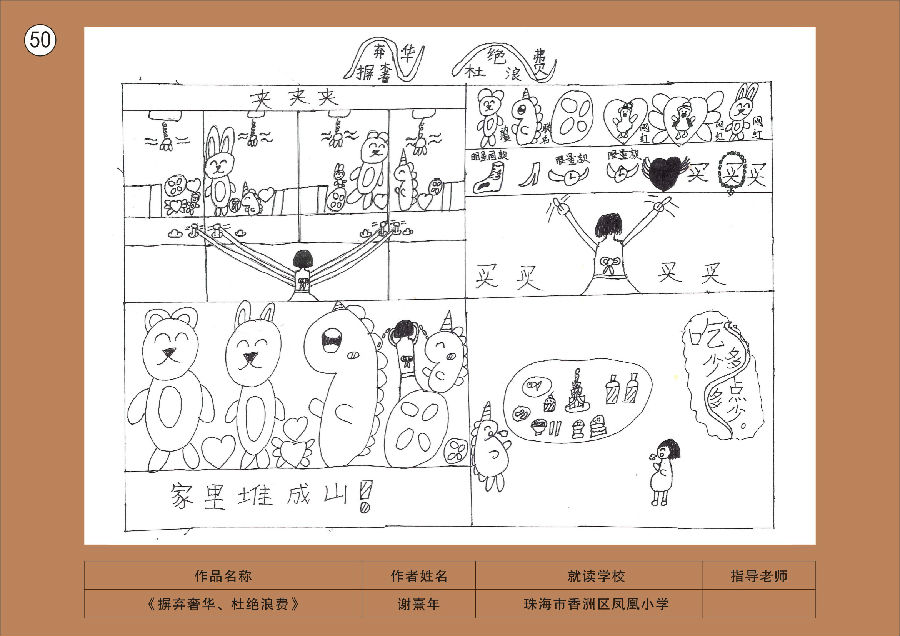 50
摒弃奢华 杜绝浪费
夹 夹 夹
网红 网红 网红
明星同款 限量款 限量款
买 买 买
买 买 买 买
家里堆成山!
吃多少点多少。
作品名称 作者姓名 就读学校 指导老师
《摒弃奢华、杜绝浪费》 谢熹年 珠海市香洲区凤凰小学